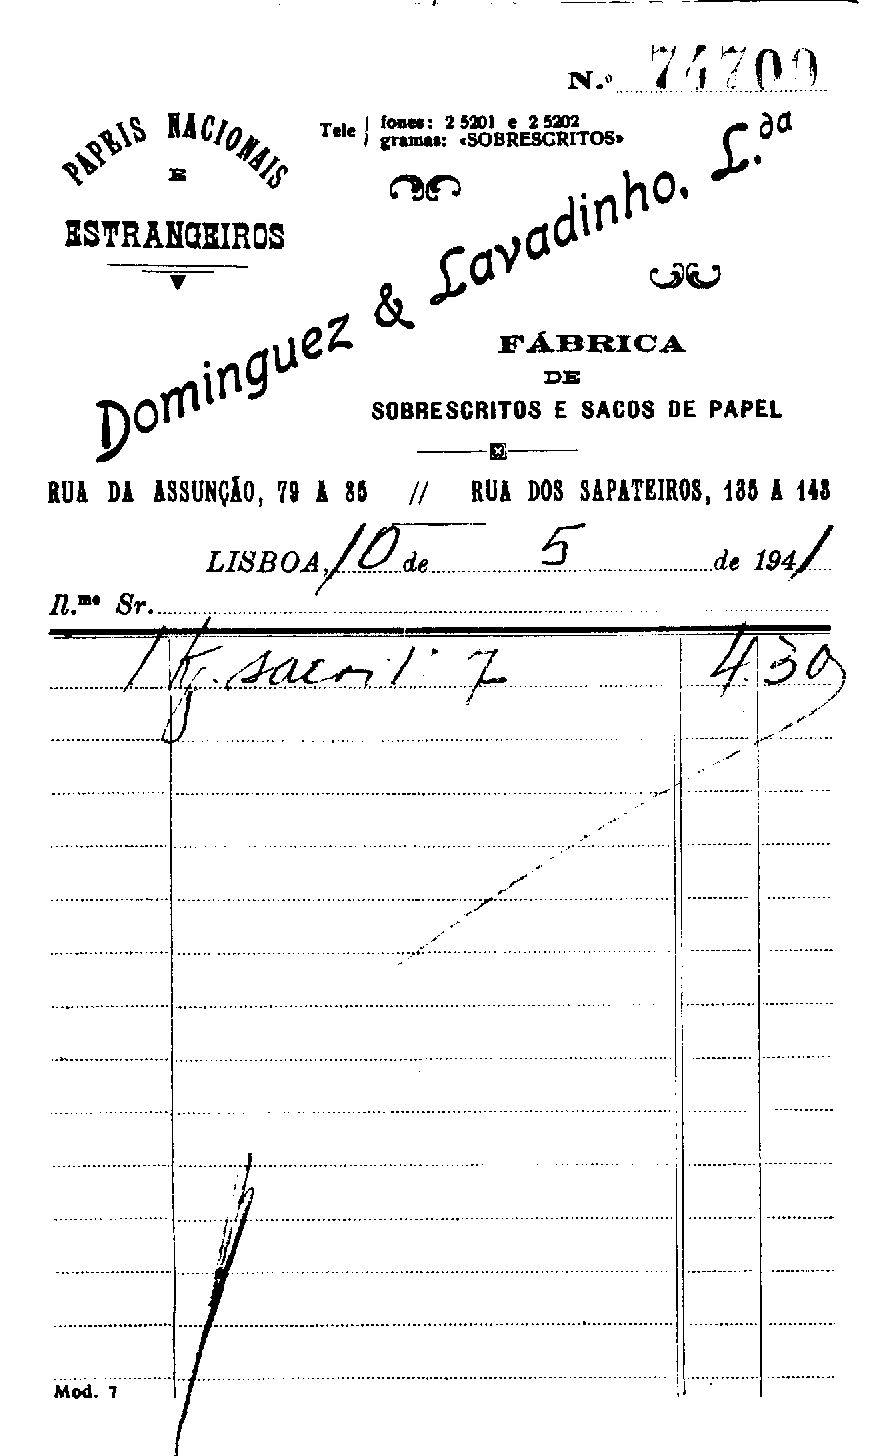 N.º 74700
PAPEIS NACIONAIS
E
ESTRANGEIROS
Telefones: 2 5201 e 2 5202
gramas: «SOBRESCRITOS»
Dominguez & Lavadinho, L.da
FÁBRICA
DE
SOBRESCRITOS E SACOS DE PAPEL
RUA DA ASSUNÇÃO, 79 A 85 // RUA DOS SAPATEIROS, 135 A 143
LISBOA, 10 de 5 de 1941
Il.mo Sr.
1 Kg. sacos 1º 7 4 30
Mod. 7